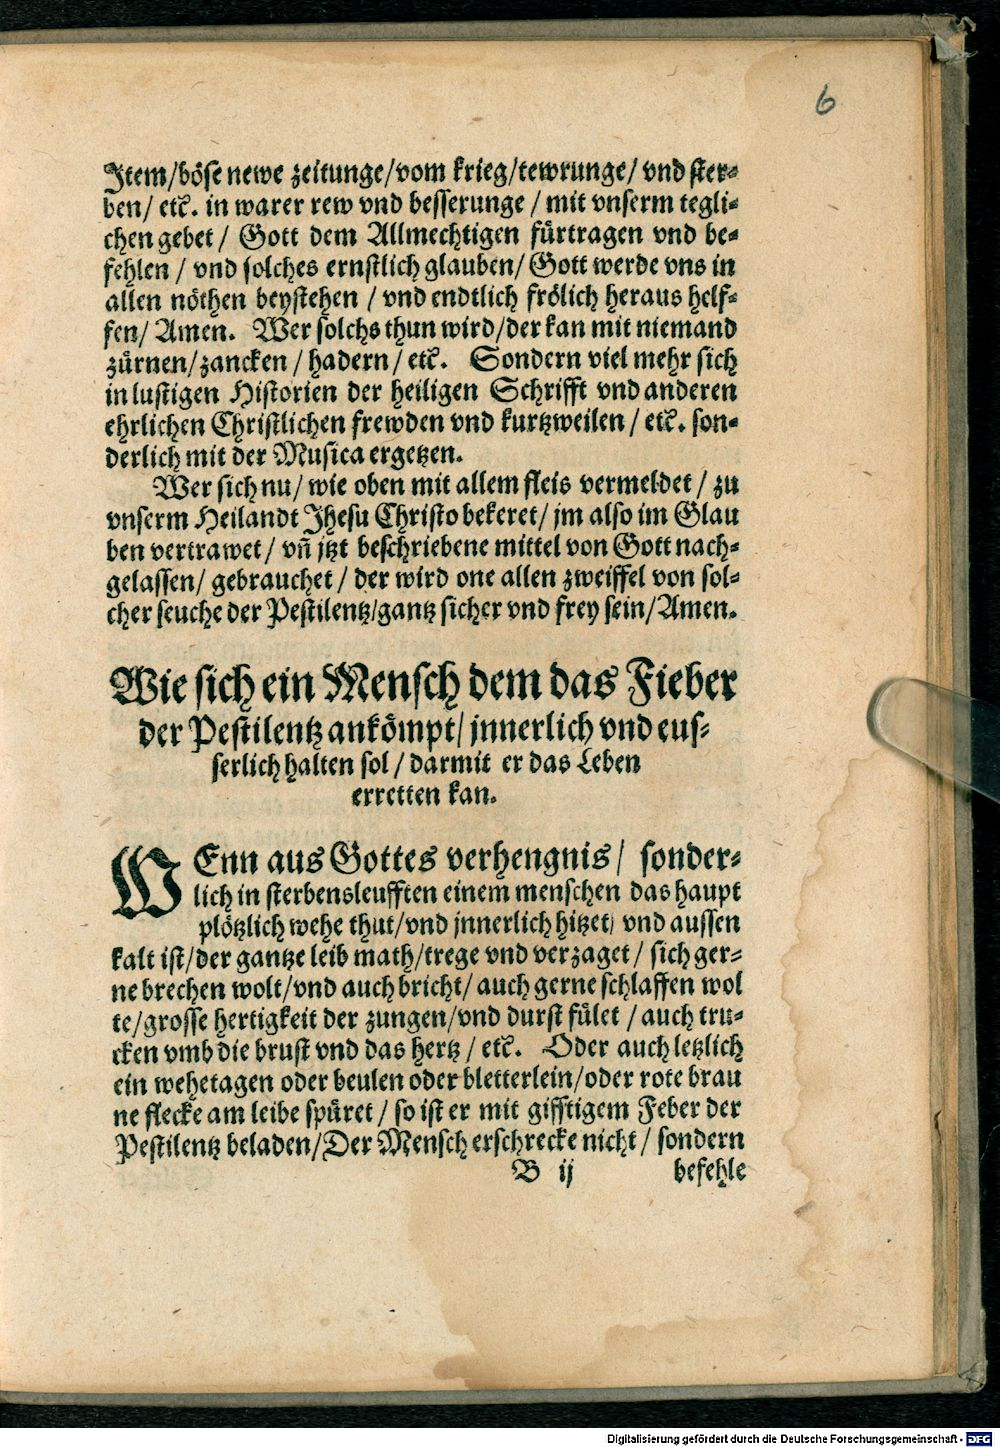 6
Item/böse newe zeitunge/vom krieg/tewrunge/ vnd ster-
ben/ etc. in warer rew vnd besserunge / mit vnserm tegli-
chen gebet / Gott dem Allmechtigen fürtragen vnd be-
fehlen / vnd solches ernstlich glauben/ Gott werde vns in
allen nöthen beystehen / vnd endtlich frölich heraus helf-
fen/ Amen. Wer solchs thun wird/der kan mit niemand
zürnen/zancken / hadern / etc. Sondern viel mehr sich
in lustigen Historien der heiligen Schrifft vnd anderen
ehrlichen Christlichen frewden vnd kurtzweilen / etc. son-
derlich mit der Musica ergetzen.
Wer sich nu/ wie oben mit allem fleis vermeldet / zu
vnserm Heilandt Jhesu Christo bekeret/ jm also im Glau
ben vertrawet / vñ jtzt beschriebene mittel von Gott nach-
gelassen/ gebrauchet / der wird one allen zweiffel von sol-
cher seuche der Pestilentz/gantz sicher vnd frey sein/Amen.
Wie sich ein Mensch dem das Fieber
der Pestilentz ankömpt/ jnnerlich vnd eus-
serlich halten sol / darmit er das Leben
erretten kan.
WEnn aus Gottes verhengnis/ sonder-
lich in sterbensleufften einem menschen das haupt
plötzlich wehe thut/vnd jnnerlich hitzet/ vnd aussen
kalt ist/der gantze leib math/trege vnd verzaget / sich ger-
ne brechen wolt/vnd auch bricht/ auch gerne schlaffen wol
te/grosse hertigkeit der zungen/vnd durst fület / auch tru-
cken vmb die brust vnd das hertz / etc. Oder auch letzlich
ein wehetagen oder beulen oder bletterlein/oder rote brau
ne flecke am leibe spüret / so ist er mit gifftigem Feber der
Pestilentz beladen/Der Mensch erschrecke nicht / sondern
B ij befehle
Digitalisierung gefördert durch die Deutsche Forschungsgemeinschaft - DFG